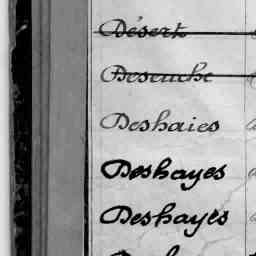 Désert
Deseuche
Deshaies
Deshayes
Deshayes